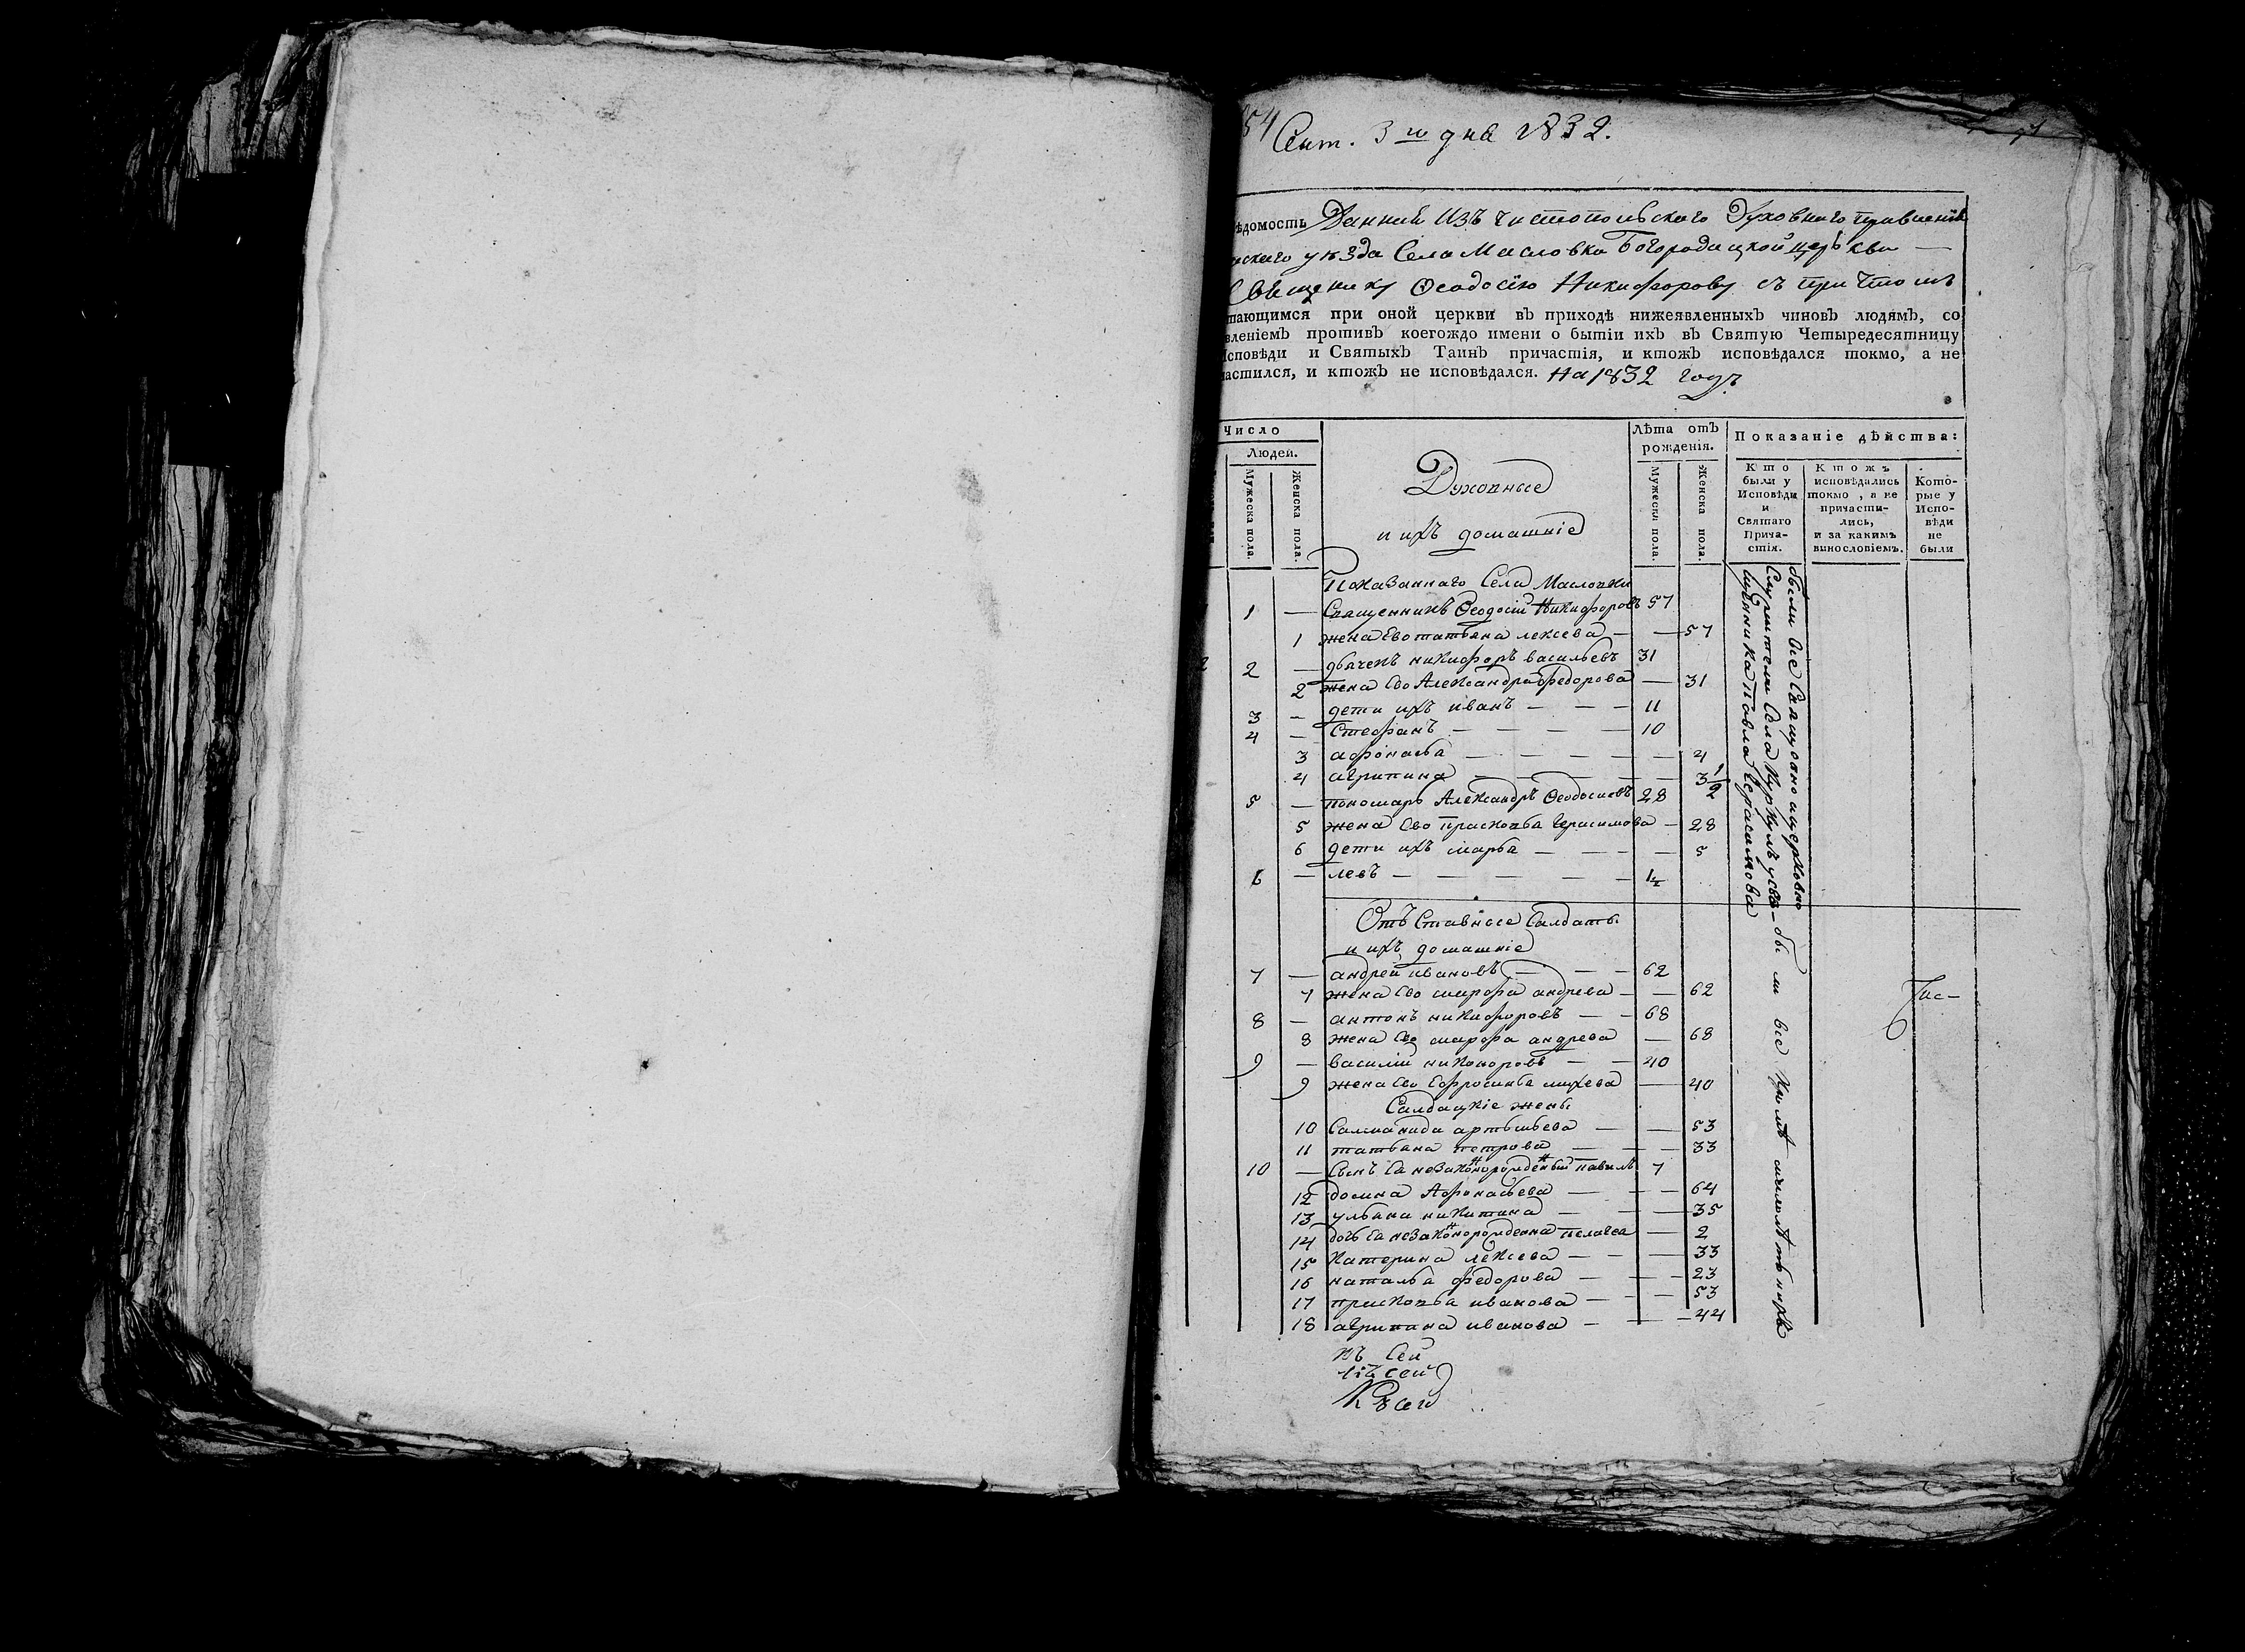 54 Сент. 3го дня 1832.
ѣдомость Данная изъ чистопольскаго Духовнаго правления
скаго уѣзда Села Масловка Богородицкой церькви —
Свещенику Ѳеодосію Никифорову съ причтомъ
тающимся при оной церкви въ приходѣ нижеявленныхъ чиновъ людямъ, со
вленіемъ противъ коегождо имени о бытіи ихъ въ Святую Четыредесятницу
Исповѣди и Святыхъ Таинъ причастія, и ктожъ исповѣдался токмо, а не
частился, и ктожъ не исповѣдался. На 1832 годъ
Число
Людей.
Мужеска пола.
Женска пола.
Духовные
и ихъ домашніе
Лѣта отъ
рожденія.
Мужеска пола.
Женска пола.
Показаніе дѣйства:
Кто
были у
Исповѣди
и
Святаго
Прича-
стія.
Ктожъ
исповѣдались
токмо, а не
причасти-
лись,
и за какимъ
винословіемъ.
Кото-
рые у
Испо-
вѣди
не
были
Показаннаго Села Масловки
1 — Священникъ Ѳеодосій Никифоровъ 57
1 жена Ево татьяна лексева — — 57
2 2 — дьячекъ никифоръ васильевъ 31
2 жена Ево Александра федорова — 31
3 — дети ихъ иванъ — — — 11
4 — Стефанъ — — — — 10
3 афонасья — — — — — 4
4 агрипина — — — — — 3 1/2
5 — пономарь Александръ Ѳеодосиевъ 28
5 жена Ево прасковья Герасимова — 28
6 дети ихъ марья — — — — 5
6 — левъ — — — — — 1/2
были все Священно и церковно
Служители Села
щенника Павла Герасимова
Отъ Ставные Салдаты
и ихъ домашніе
7 — андрей ивановъ — — — 62
7 жена Ево марфа андрева — — 62
8 — антонъ никифоровъ — — 68
8 жена Ево марфа андрева — 68
9 — василий никоноровъ — — 40
9 жена Ево Ефросинья михева — 40
Салдацкіе жены
10 Саламанида артемьева — — 53
11 татьяна петрова — — — 33
10 — Сынъ Ея незаконорожденый павилъ 7
12 домна Афонасьева — — — 64
13 ульяна никитина — — — 35
14 дочь Ея незаконорожденна пелагея — 2
15 Катерина лексева — — — 33
16 наталья федорова — — — 23
17 прасковья иванова — — — 53
18 агрипина иванова — — — 44
были все
Къ Сей
Къ сей